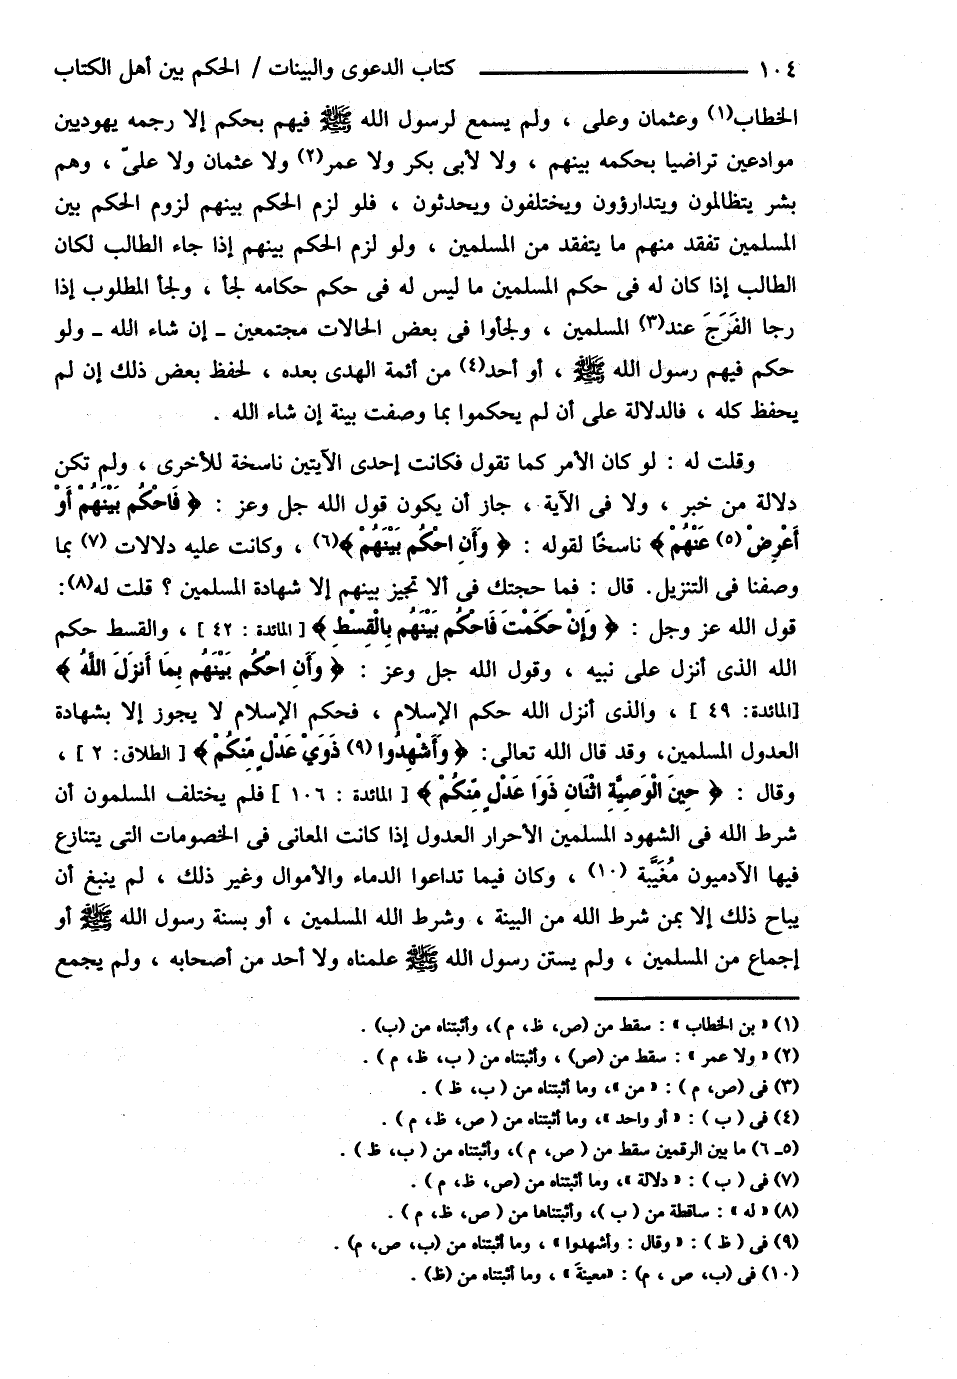 ١٠٤ ـــــــ كتاب الدعوى والبينات / الحكم بين أهل الكتاب
الخطاب(١) وعثمان وعلى ، ولم يسمع لرسول الله ﷺ فيهم بحكم إلا رجمه يهوديين
موادعين تراضيا بحكمه بينهم ، ولا لأبى بكر ولا عمر(٢) ولا عثمان ولا علىّ ، وهم
بشر يتظالمون ويتدارؤون ويختلفون ويحدثون ، فلو لزم الحكم بينهم لزوم الحكم بين
المسلمين تفقد منهم ما يتفقد من المسلمين ، ولو لزم الحكم بينهم إذا جاء الطالب لكان
الطالب إذا كان له فى حكم المسلمين ما ليس له فى حكم حكامه لجأ ، ولجأ المطلوب إذا
رجا الفَرَجَ عند(٣) المسلمين ، ولجأوا فى بعض الحالات مجتمعين ـ إن شاء الله ـ ولو
حكم فيهم رسول الله ﷺ ، أو أحد(٤) من أئمة الهدى بعده ، لحفظ بعض ذلك إن لم
يحفظ كله ، فالدلالة على أن لم يحكموا بما وصفت بينة إن شاء الله .
وقلت له : لو كان الأمر كما تقول فكانت إحدى الآيتين ناسخة للأخرى ، ولم تكن
دلالة من خبر ، ولا فى الآية ، جاز أن يكون قول الله جل وعز : ﴿ فَاحْكُم بَيْنَهُمْ أَوْ
أَعْرِضْ(٥) عَنْهُمْ ﴾ ناسخًا لقوله : ﴿ وَأَنِ احْكُم بَيْنَهُمْ ﴾(٦) ، وكانت عليه دلالات (٧) بما
وصفنا فى التنزيل. قال : فما حجتك فى ألا تجيز بينهم إلا شهادة المسلمين ؟ قلت له(٨):
قول الله عز وجل : ﴿ وَإِنْ حَكَمْتَ فَاحْكُم بَيْنَهُم بِالْقِسْطِ ﴾ [ المائدة : ٤٢ ] ، والقسط حكم
الله الذى أنزل على نبيه ، وقول الله جل وعز : ﴿ وَأَنِ احْكُم بَيْنَهُم بِمَا أَنزَلَ اللَّهُ ﴾
[المائدة: ٤٩ ] ، والذى أنزل الله حكم الإسلام ، فحكم الإسلام لا يجوز إلا بشهادة
العدول المسلمين، وقد قال الله تعالى: ﴿ وَأَشْهِدُوا (٩) ذَوَيْ عَدْلٍ مِّنكُمْ ﴾ [ الطلاق: ٢ ] ،
وقال : ﴿ حِينَ الْوَصِيَّةِ اثْنَانِ ذَوَا عَدْلٍ مِّنكُمْ ﴾ [ المائدة : ١٠٦ ] فلم يختلف المسلمون أن
شرط الله فى الشهود المسلمين الأحرار العدول إذا كانت المعانى فى الخصومات التى يتنازع
فيها الآدميون مُغَيَّبة (١٠) ، وكان فيما تداعوا الدماء والأموال وغير ذلك ، لم ينبغ أن
يباح ذلك إلا بمن شرط الله من البينة ، وشرط الله المسلمين ، أو بسنة رسول الله ﷺ أو
إجماع من المسلمين ، ولم يستن رسول الله ﷺ علمناه ولا أحد من أصحابه ، ولم يجمع
(١) « بن الخطاب » : سقط من (ص، ظ، م )، وأثبتناه من (ب) .
(٢) « ولا عمر » : سقط من (ص) ، وأثبتناه من ( ب، ظ، م ) .
(٣) فى (ص، م ) : « من »، وما أثبتناه من ( ب، ظ ) .
(٤) فى ( ب ) : « أو واحد »، وما أثبتناه من ( ص، ظ، م ) .
(٥ـ ٦) ما بين الرقمين سقط من ( ص، م )، وأثبتناه من ( ب، ظ ) .
(٧) فى ( ب ) : « دلالة »، وما أثبتناه من (ص، ظ، م ) .
(٨) « له » : ساقطة من ( ب )، وأثبتناها من ( ص، ظ، م ) .
(٩) فى ( ظ ) : « وقال : وأشهدوا » ، وما أثبتناه من (ب، ص، م) .
(١٠) فى (ب، ص ، م) : «معينةً» ، وما أثبتناه من (ظ) .